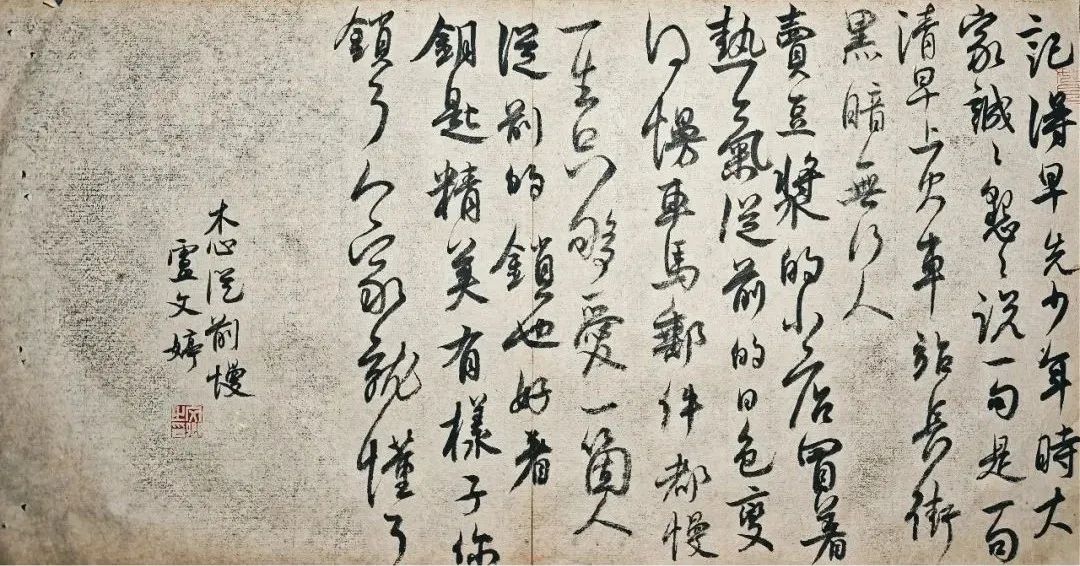 記得早先少年時大
家誠〻懇〻說一句是一句
清早上火車站長街
黑暗無行人
賣豆漿的小店冒着
熱氣從前的日色變
得慢車馬郵件都慢
一生只夠愛一箇人
從前的鎖也好看
鑰匙精美有樣子你
鎖了人家就懂了
木心從前慢
盧文婷